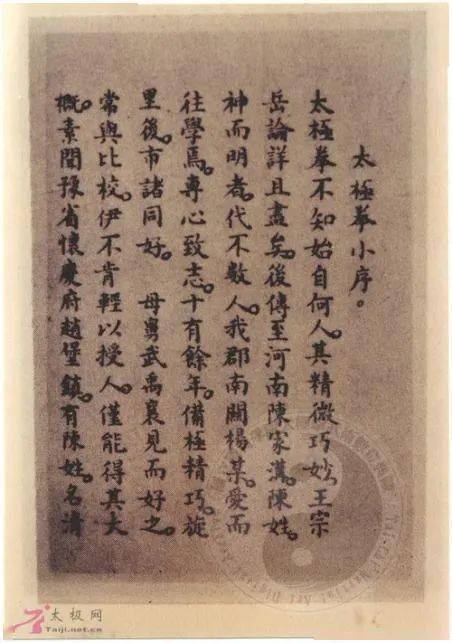 太極拳小序。
太極拳不知始自何人。其精微巧妙。王宗
岳論詳且盡矣。後傳至河南陳家溝。陳姓。
神而明者。代不數人。我郡南關楊某。愛而
往學焉。專心致志。十有餘年。備極精巧。旋
里後。市諸同好。母舅武禹襄見而好之。
常與比校。伊不肯輕以授人。僅能得其大
概。素聞豫省懷慶府趙堡鎮。有陳姓。名清
太极网
Taiji.net.cn